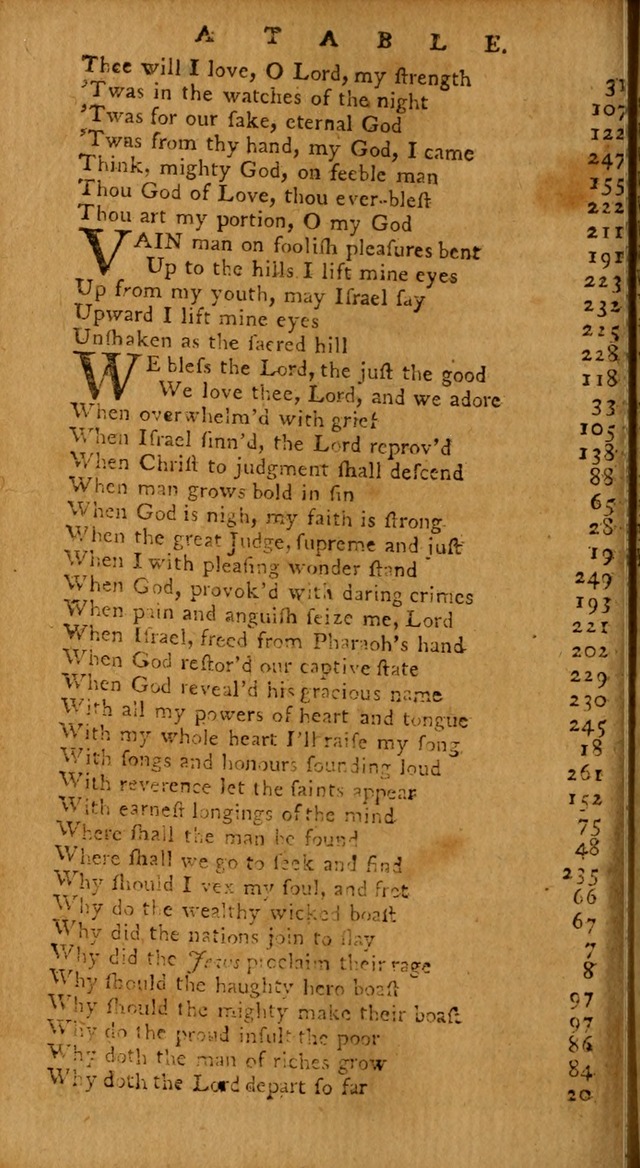 A TABLE.
Thee will I love, O Lord, my ſtrength 31
'Twas in the watches of the night 107
'Twas for our ſake, eternal God 122
'Twas from thy hand, my God, I came 247
Think, mighty God, on feeble man 155
Thou God of Love, thou ever-bleſt 222
Thou art my portion, O my God 211
VAIN man on fooliſh pleaſures bent 191
Up to the hills I lift mine eyes 223
Up from my youth, may Iſrael ſay 232
Upward I lift mine eyes 225
Unſhaken as the ſacred hill 228
WE bleſs the Lord, the juſt the good 118
We love thee, Lord, and we adore 33
When overwhelm'd with grief 105
When Iſrael ſinn'd, the Lord reprov'd 138
When Chriſt to judgment ſhall deſcend 88
When man grows bold in ſin 65
When God is nigh, my faith is ſtrong 28
When the great Judge, ſupreme and juſt 19
When I with pleaſing wonder ſtand 249
When God, provok'd with daring crimes 193
When pain and anguiſh ſeize me, Lord 221
When Iſrael, freed from Pharaoh's hand 202
When God reſtor'd our captive ſtate 229
When God reveal'd his gracious name 230
With all my powers of heart and tongue 245
With my whole heart I'll raiſe my ſong 18
With ſongs and honours ſounding loud 261
With reverence let the ſaints appear 152
With earneſt longings of the mind 75
Where ſhall the man be found 48
Where ſhall we go to ſeek and find 235
Why ſhould I vex my ſoul, and fret 66
Why do the wealthy wicked boaſt 67
Why did the nations join to ſlay 7
Why did the Jews proclaim their rage 8
Why ſhould the haughty hero boaſt 97
Why ſhould the mighty make their boaſt 97
Why do the proud inſult the poor 86
Why doth the man of riches grow 84
Why doth the Lord depart ſo far 20